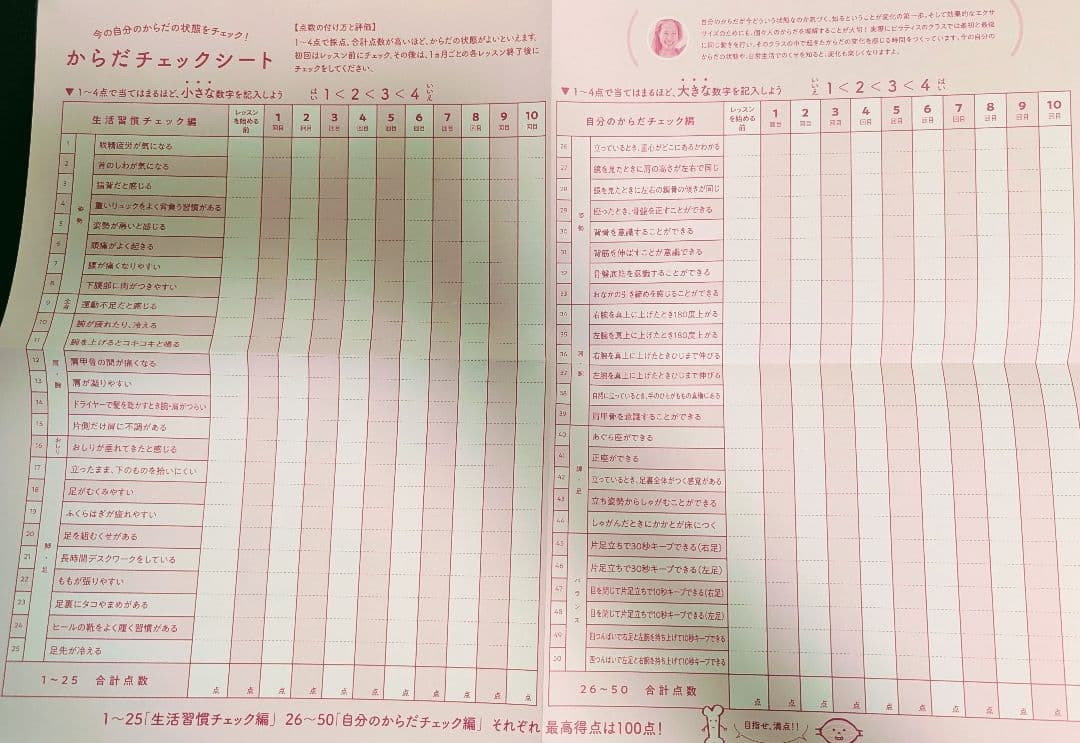 今の自分のからだの状態をチェック!
からだチェックシート
【点数の付け方と評価】
1〜4点で採点。合計点数が高いほど、からだの状態がよいといえます。
初回はレッスン前にチェック、その後は、1ヵ月ごとの各レッスン終了後に
チェックをしてください。
▼1〜4点で当てはまるほど、小さな数字を記入しよう はい 1<2<3<4 いいえ
生活習慣チェック編 レッスンを始める前 1回目 2回目 3回目 4回目 5回目 6回目 7回目 8回目 9回目 10回目
姿勢
1 眼精疲労が気になる
2 首のしわが気になる
3 猫背だと感じる
4 重いリュックをよく背負う習慣がある
5 姿勢が悪いと感じる
6 頭痛がよく起きる
7 腰が痛くなりやすい
8 下腹部に肉がつきやすい
全身
9 運動不足だと感じる
肩・腕
10 腕が疲れたり、冷える
11 腕を上げるとコキコキと鳴る
12 肩甲骨の間が痛くなる
13 肩が凝りやすい
14 ドライヤーで髪を乾かすとき腕・肩がつらい
15 片側だけ肩に不調がある
おしり
16 おしりが垂れてきたと感じる
脚・足
17 立ったまま、下のものを拾いにくい
18 足がむくみやすい
19 ふくらはぎが疲れやすい
20 足を組むくせがある
21 長時間デスクワークをしている
22 ももが張りやすい
23 足裏にタコやまめがある
24 ヒールの靴をよく履く習慣がある
25 足先が冷える
1〜25 合計点数 点 点 点 点 点 点 点 点 点 点 点
自分のからだが今どういう状態なのか気づく、知るということが変化の第一歩。そして効果的なエクサ
サイズのためにも、個々人のからだを理解することが大切! 実際にピラティスのクラスでは最初と最後
に同じ動きを行い、そのクラスの中で起きたからだの変化を感じる時間をつくっています。今の自分の
からだの状態や、日常生活でのくせを知ると、変化も楽しくなりますよ。
▼1〜4点で当てはまるほど、大きな数字を記入しよう いいえ 1<2<3<4 はい
自分のからだチェック編 レッスンを始める前 1回目 2回目 3回目 4回目 5回目 6回目 7回目 8回目 9回目 10回目
姿勢
26 立っているとき、重心がどこにあるかわかる
27 鏡を見たときに肩の高さが左右で同じ
28 鏡を見たときに左右の鎖骨の傾きが同じ
29 座ったとき、骨盤を正すことができる
30 背骨を意識することができる
31 背筋を伸ばすことが意識できる
32 骨盤底筋を意識することができる
33 おなかの引き締めを感じることができる
肩・腕
34 右腕を真上に上げたとき180度上がる
35 左腕を真上に上げたとき180度上がる
36 右腕を真上に上げたときひじまで伸びる
37 左腕を真上に上げたときひじまで伸びる
38 自然に立っているとき、手のひらがももの真横にある
39 肩甲骨を意識することができる
脚・足
40 あぐら座ができる
41 正座ができる
42 立っているとき、足裏全体がつく感覚がある
43 立ち姿勢からしゃがむことができる
44 しゃがんだときにかかとが床につく
バランス
45 片足立ちで30秒キープできる(右足)
46 片足立ちで30秒キープできる(左足)
47 目を閉じて片足立ちで10秒キープできる(右足)
48 目を閉じて片足立ちで10秒キープできる(左足)
49 四つんばいで右足と左腕を持ち上げて10秒キープできる
50 四つんばいで左足と右腕を持ち上げて10秒キープできる
26〜50 合計点数 点 点 点 点 点 点 点 点 点 点 点
1〜25「生活習慣チェック編」 26〜50「自分のからだチェック編」 それぞれ最高得点は100点!
目指せ、満点!!